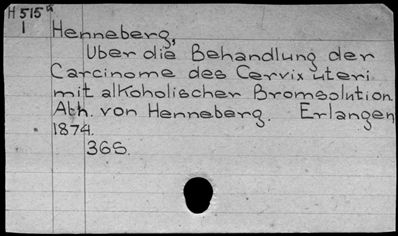 H 515 a
1
Henneberg,
Uber die Behandlung der
Carcinome des Cervix uteri
mit alkoholischer Bromsolution
Ath. von Henneberg. Erlangen
1874.
36S.